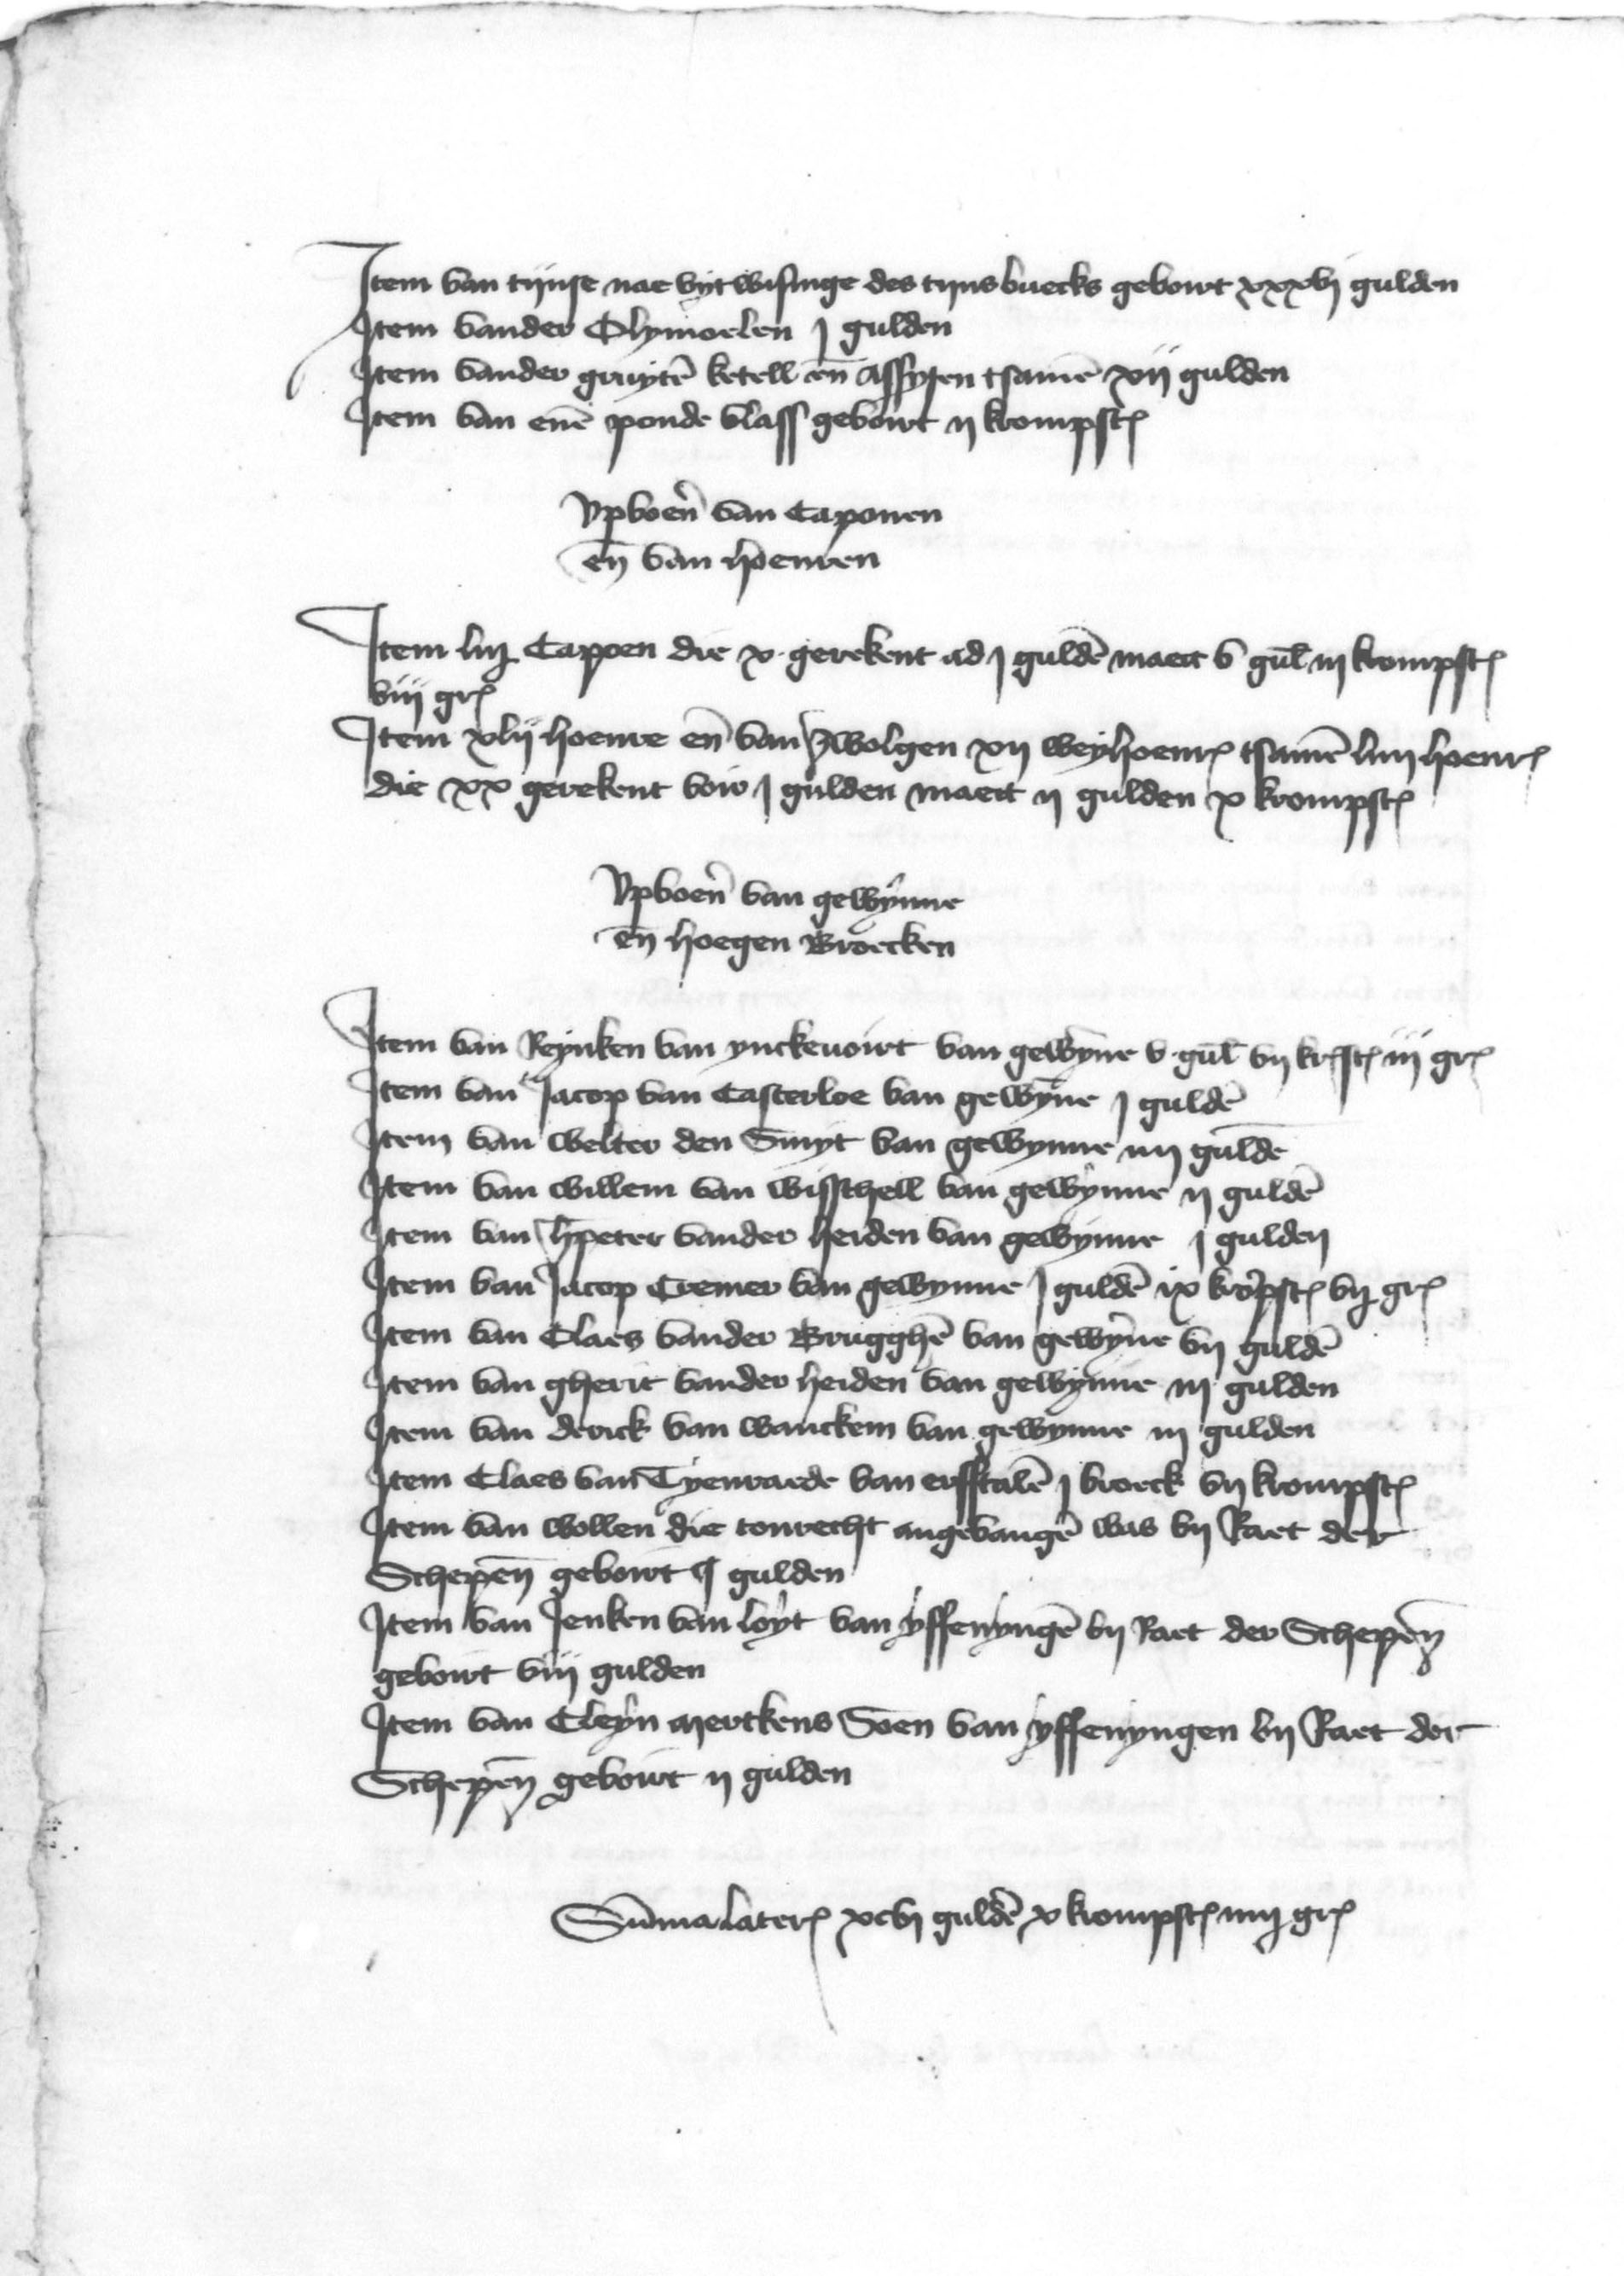 Item van tijnse nae vijtwisinge des tijns buecks geboirt xxxvj gulden
Item vander Olymoelen j gulden
Item vander gruytē ketell eñ Assysen tsamē xij gulden
Item van enē ponde vlass geboirt ij krompst̄
Vpboeñ van Caponen
eñ van hoenren
Item liij Capoen die x gerekent ad j guldē maect v gul̄ iij krompst̄
viij gr̄
Item xlij hoenre eñ van Zwolgen xij weyhoenr̄ tsamē liiij hoenr̄
die xx gerekent voir j gulden maect ij gulden x krompst̄
Vpboeñ van gewynne
eñ hoegen Broecken
Item van Reynken van ynckeuoirt van gewȳne v gul̄ vij kr̄st̄ iij gr̄
Item van Jacop van Casterloe van gewȳne j guldē
Item van welter den Smyt van gewynne iiij guldē
Item van willem van wisschell van gewynne ij guldē
Item van h̄ peter vander heiden van gewynne j gulden
Item van Jacop Cremer van gewynne j guldē ix krōpst̄ vij gr̄
Item van Claes vander Brugghē van gewȳne vij guldē
Item van gherit vander heiden van gewynne iij gulden
Item van derick van wanckem van gewynne iij gulden
Item Claes van Tyenraede van erfftalē j broeck vij krompst̄
Item van wollen die tonrecht angevangē was bij Raet der
Schepeñ geboirt j gulden
Item van Jenken van loyt van yffenyngē bij Raet der Schepeñ
geboirt viij gulden
Item van Cleyn mertkens Soen van yffenyngen bij Raet der
Schepeñ geboirt ij gulden
Sūma later̄ xcvj guldē x krompst̄ iiij gr̄